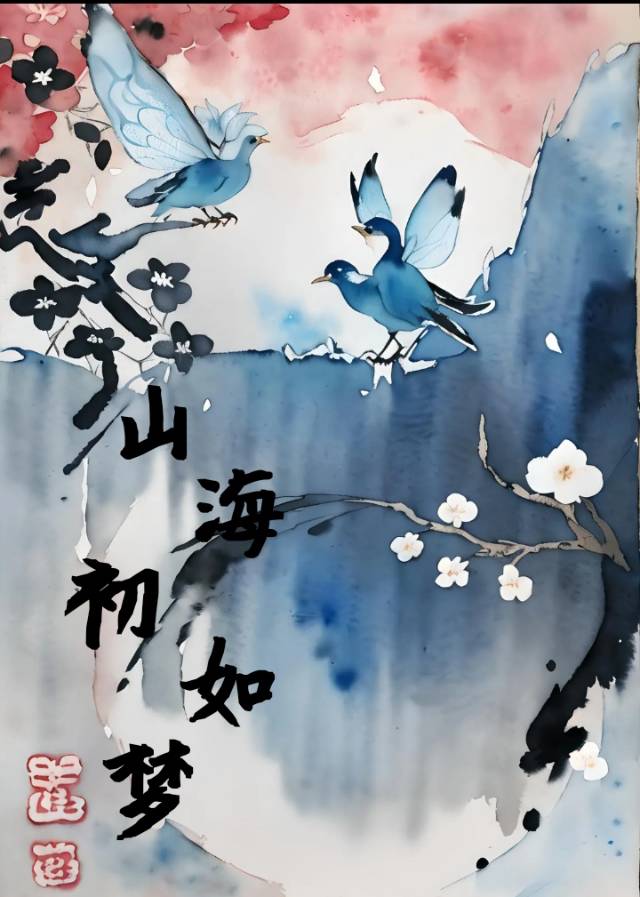 山海初如梦